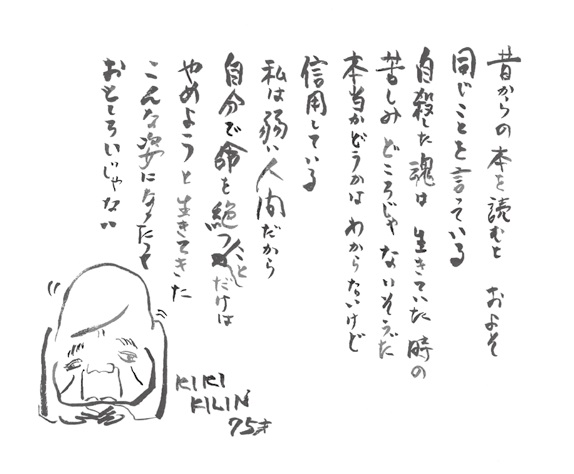 昔からの本を読むと　およそ
同じことを言っている
自殺した魂は　生きていた時の
苦しみどころじゃ　ないそうだ
本当かどうかは　わからないけど
信用している
私は弱い人間だから
自分で命を絶つことだけは
やめようと　生きてきた
こんな姿になったって
おもしろいじゃない
KIKI
KILIN
75才